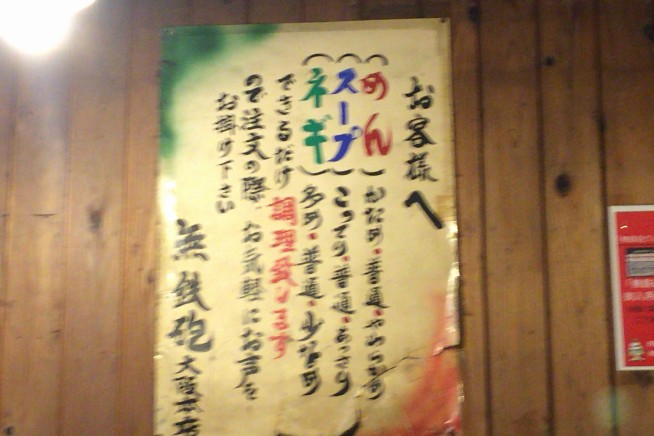 お客様へ
(めん) かため・普通・やわらかめ
(スープ) こってり・普通・あっさり
(ネギ) 多め・普通・少なめ
できるだけ調理致します
ので注文の際、お気軽にお声を
お掛け下さい
無鉄砲 大阪本店